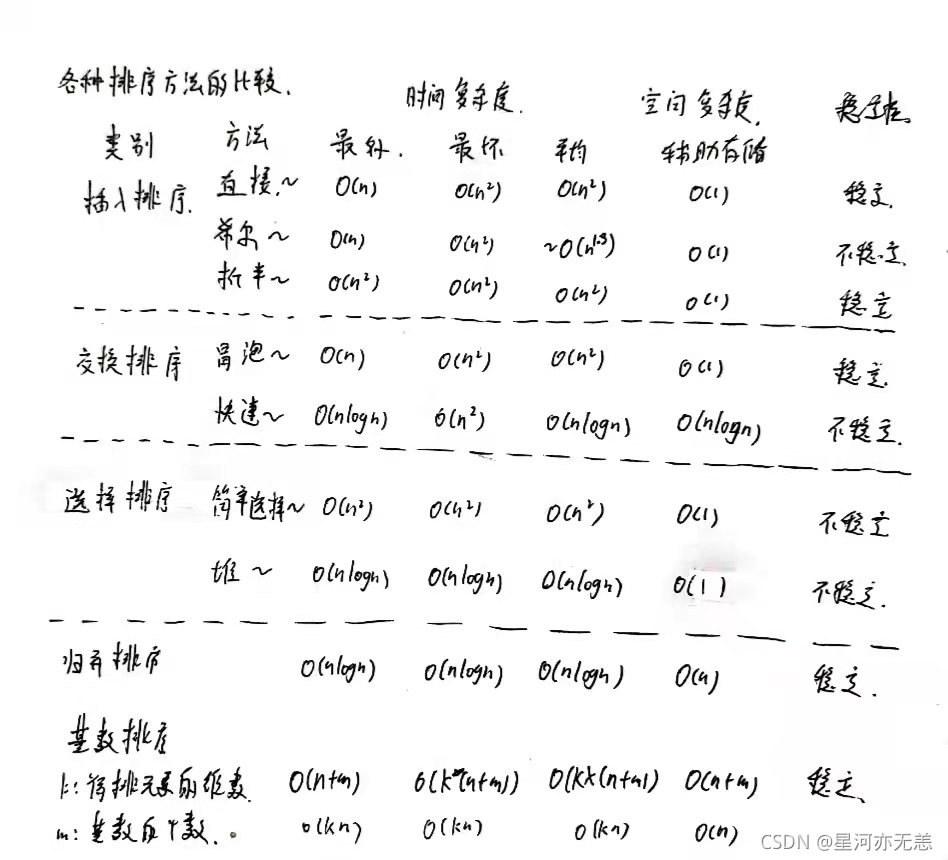 各种排序方法的比较.
时间复杂度. 空间复杂度. 稳定性
类别 方法 最好. 最坏 平均 辅助存储
插入排序. 直接~ O(n) O(n²) O(n²) O(1) 稳定.
希尔~ O(n) O(n²) ~O(n^1.3) O(1) 不稳定.
折半~ O(n²) O(n²) O(n²) O(1) 稳定
交换排序 冒泡~ O(n) O(n²) O(n²) O(1) 稳定.
快速~ O(nlogn) O(n²) O(nlogn) O(nlogn) 不稳定.
选择排序 简单选择~ O(n²) O(n²) O(n²) O(1) 不稳定
堆~ O(nlogn) O(nlogn) O(nlogn) O(1) 不稳定.
归并排序 O(nlogn) O(nlogn) O(nlogn) O(n) 稳定.
基数排序
k:待排元素的维数. O(n+m) O(k*(n+m)) O(k×(n+m)) O(n+m) 稳定.
m:基数的个数. O(kn) O(kn) O(kn) O(n)
CSDN @星河亦无恙